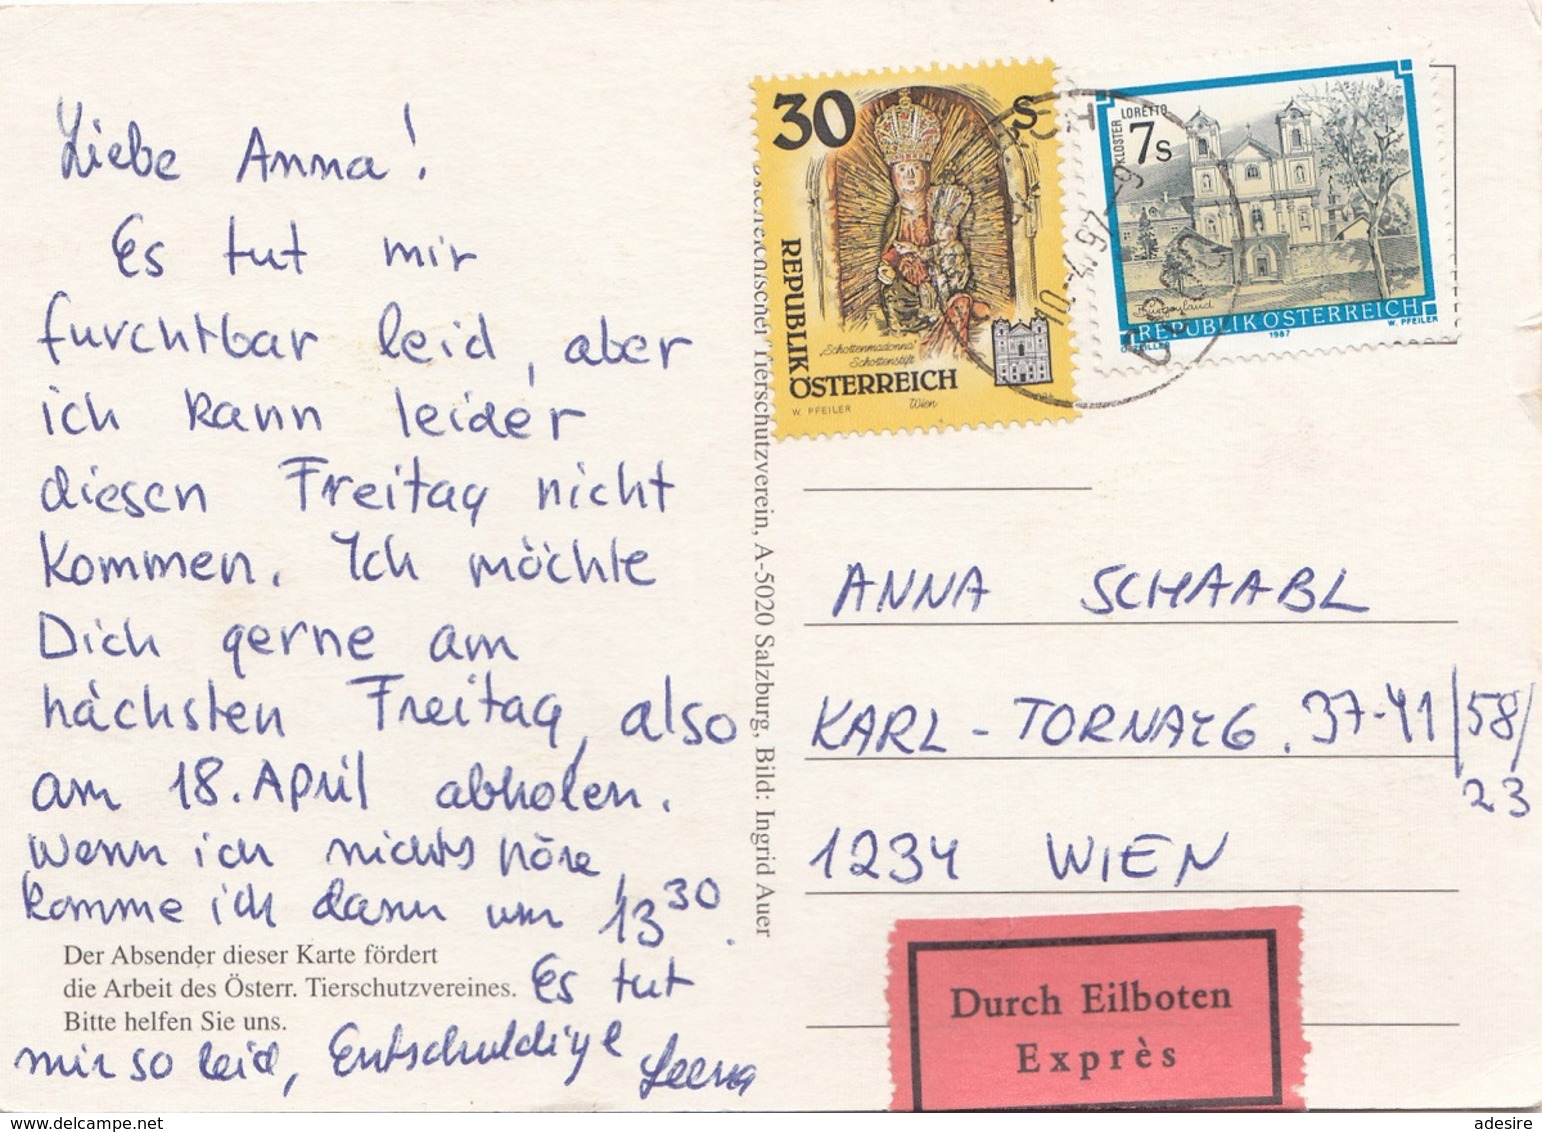 Liebe Anna!
Es tut mir
furchtbar leid, aber
ich kann leider
diesen Freitag nicht
kommen. Ich möchte
Dich gerne am
nächsten Freitag, also
am 18. April abholen.
Wenn ich nichts höre,
komme ich dann um 13 30.
Der Absender dieser Karte fördert
die Arbeit des Österr. Tierschutzvereines.
Bitte helfen Sie uns.
Es tut
mir so leid, Entschuldige
Österreichischer Tierschutzverein, A-5020 Salzburg, Bild: Ingrid Auer
30 S
REPUBLIK
ÖSTERREICH
„Schottenmadonna"
Schottenstift
Wien
W. PFEILER
KLOSTER LORETTO
7s
Burgenland
REPUBLIK ÖSTERREICH
1987
W. PFEILER
10.-4.97-9
ANNA SCHAABL
KARL-TORNAYG. 37-41/58/
23
1234 WIEN
Durch Eilboten
Exprès
delcampe.net
adesire